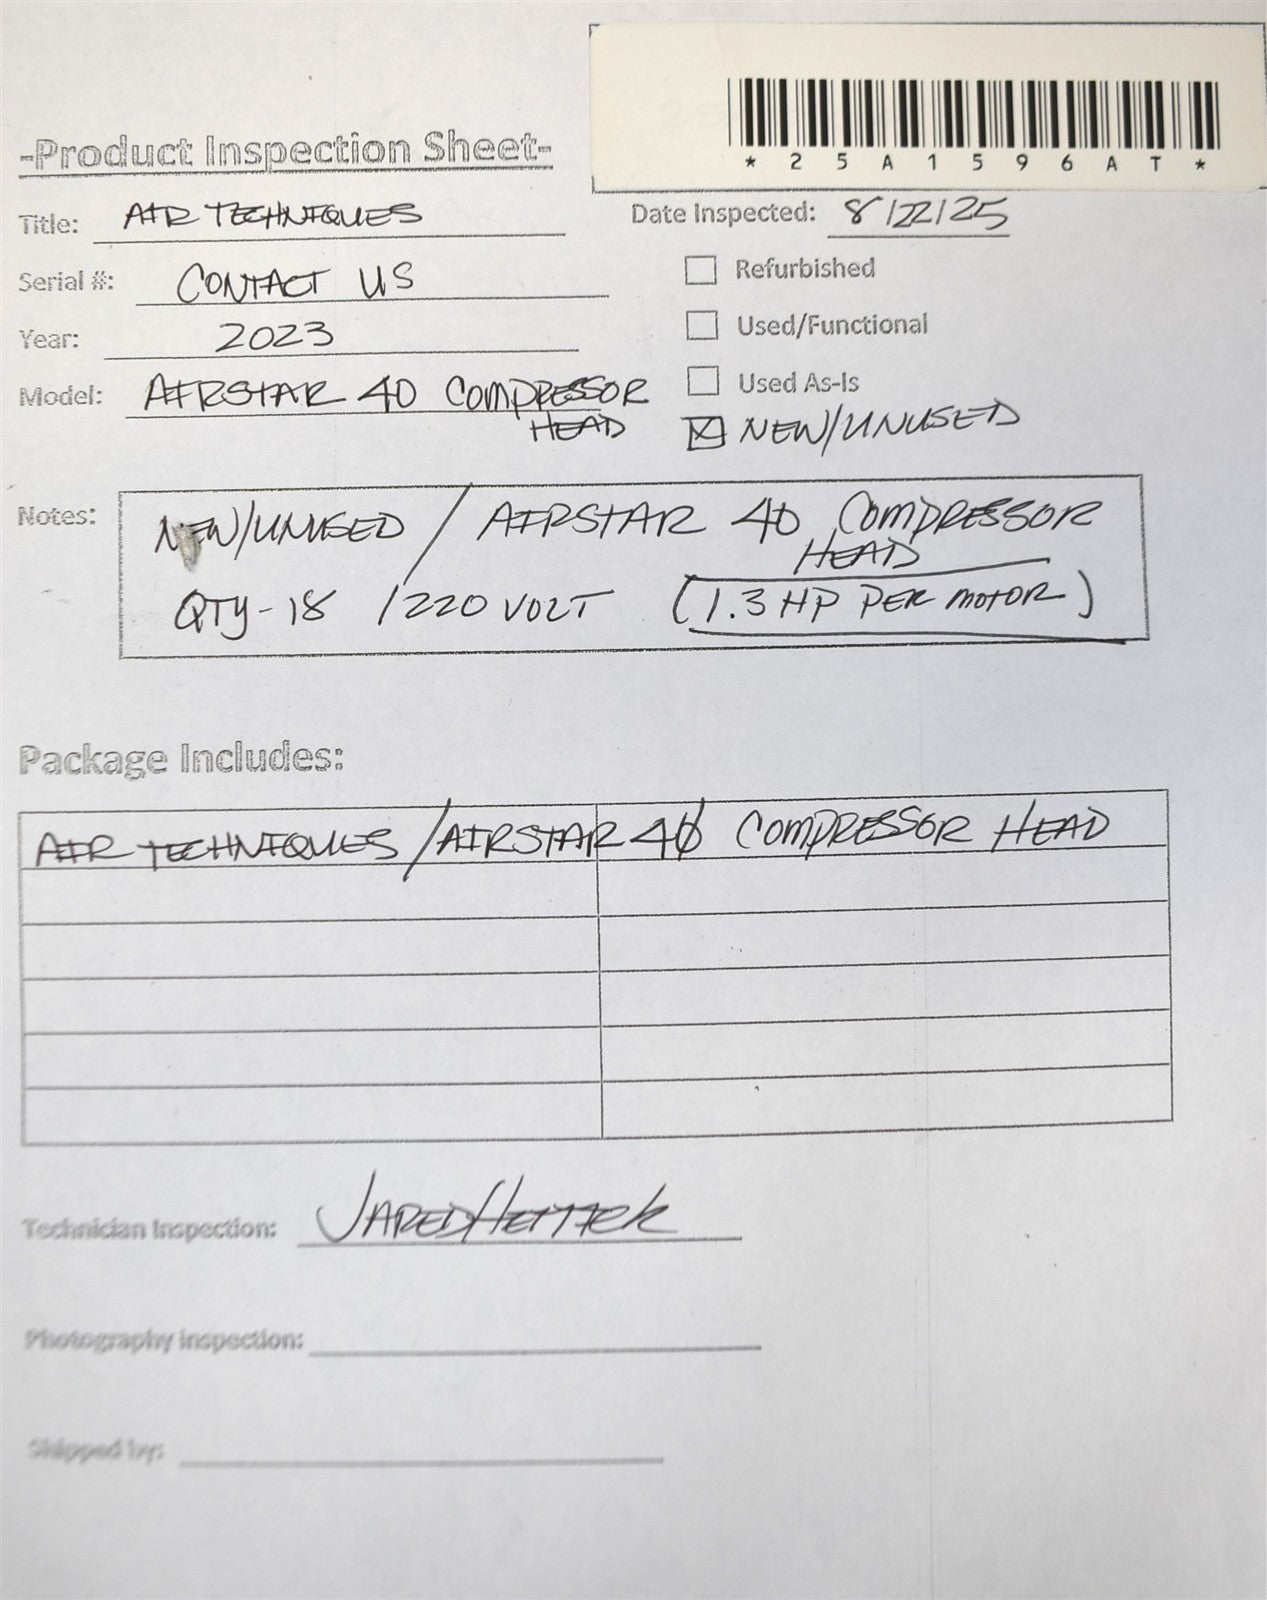 *25A1596AT*
-Product Inspection Sheet-
Title: AIR TECHNIQUES
Date Inspected: 8/22/25
Serial #: CONTACT US
Refurbished
Year: 2023
Used/Functional
Model: AIRSTAR 40 COMPRESSOR
HEAD
Used As-Is
NEW/UNUSED
Notes: NEW/UNUSED / AIRSTAR 40 COMPRESSOR
HEAD
QTY-18 /220 VOLT (1.3 HP PER MOTOR)
Package Includes:
AIR TECHNIQUES /AIRSTAR 40 COMPRESSOR HEAD
Technician Inspection: JARED
Photography inspection:
Shipped by: